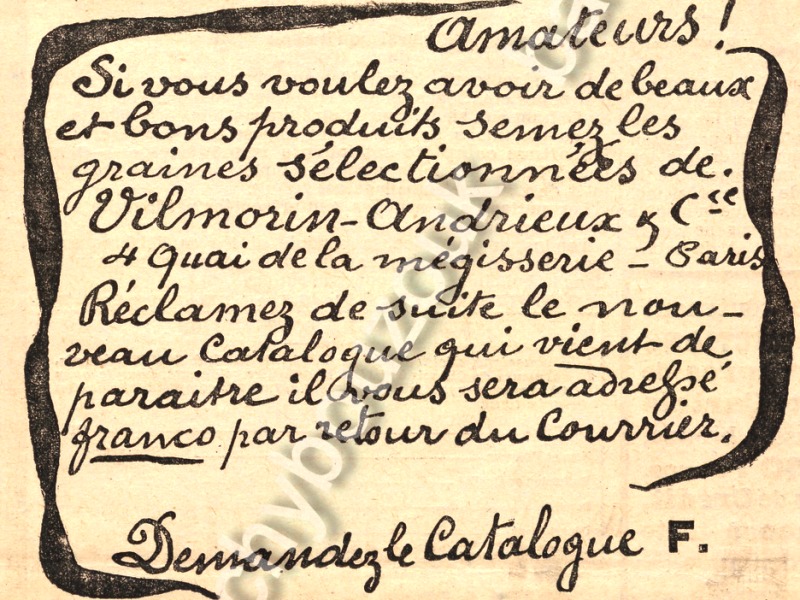 Amateurs!
Si vous voulez avoir de beaux
et bons produits semez les
graines sélectionnées de.
Vilmorin-Andrieux & Cie
4 Quai de la mégisserie - Paris
Réclamez de suite le nou-
veau Catalogue qui vient de
paraitre il vous sera adressé
franco par retour du Courrier.
Demandez le Catalogue F.